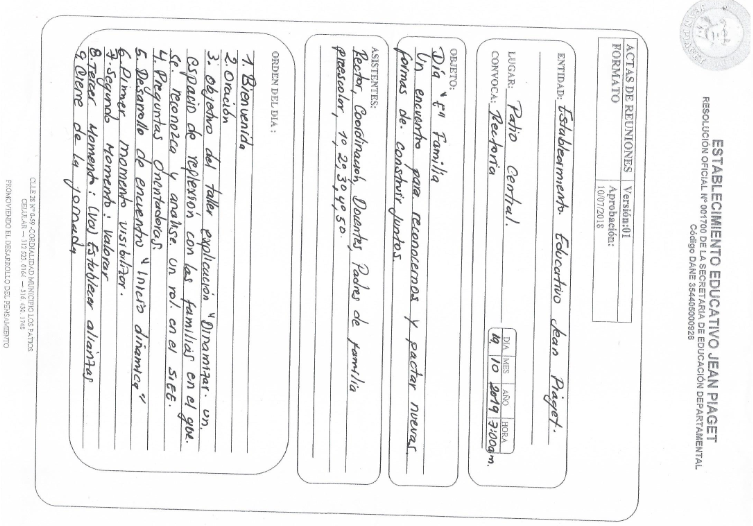 ESTABLECIMIENTO EDUCATIVO JEAN PIAGET
RESOLUCIÓN OFICIAL Nº 001700 DE LA SECRETARIA DE EDUCACIÓN DEPARTAMENTAL
Código DANE 354405000926
ACTAS DE REUNIONES
FORMATO
Versión:01
Aprobación:
10/07/2018
ENTIDAD: Establecimiento Educativo Jean Piaget.
LUGAR: Patio Central.
CONVOCA: Rectoria
DIA MES AÑO HORA
19 10 2019 7:00am.
OBJETO:
Día "E" Familia
Un encuentro para reconocernos y pactar nuevas
formas de construir juntos.
ASISTENTES:
Rector, Coordinación, Docentes Padres de familia
preescolar, 1º, 2º, 3º, 4º, 5º.
ORDEN DEL DIA:
1. Bienvenida
2. Oración
3. Objetivo del taller explicación "Dinamizar. un.
Espacio de reflexión con las familias en el que.
se. reconozca y analise un rol. en el SIEE.
4. Preguntas Orientadoras.
5. Desarrollo de encuentro "Inicio dinamica"
6. Primer momento visibilizar.
7. Segundo Momento: Valorar
8. Tercer Momento: (Voz) Establecer alianzas
9. Cierre de la jornada
CLLE 28 Nº CORDIALIDAD MUNICIPIO LOS PATIOS
CELULAR
PROMOVIENDO EL DESARROLLO DEL PENSAMIENTO